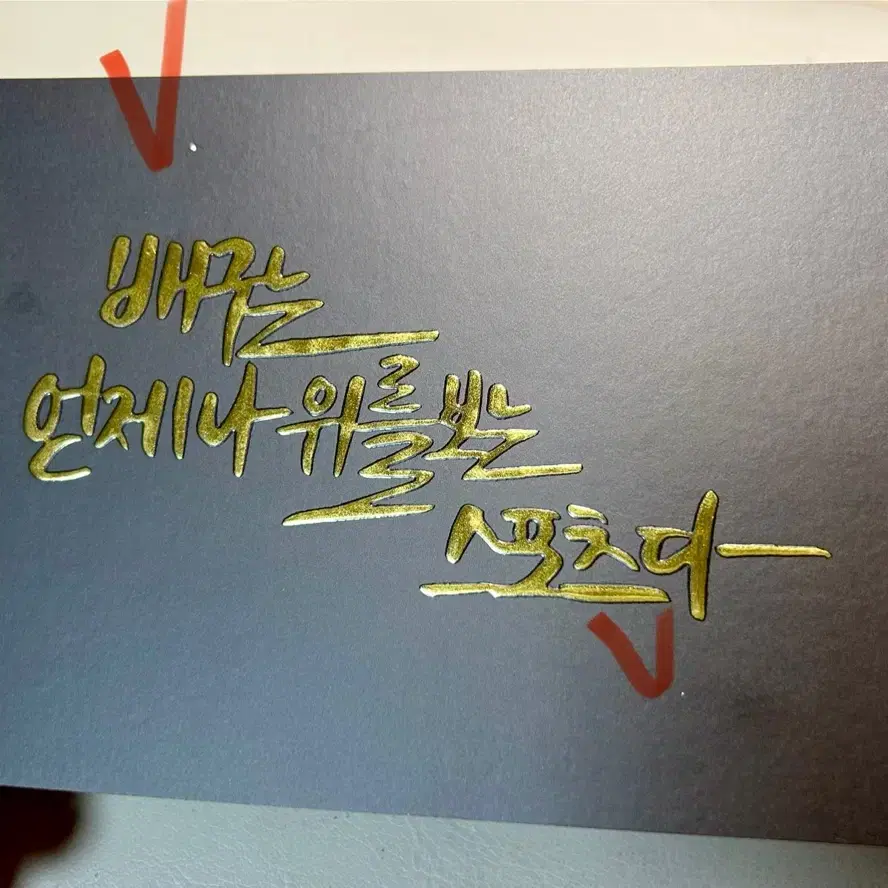 배구는
언제나 위를 보는
스포츠다